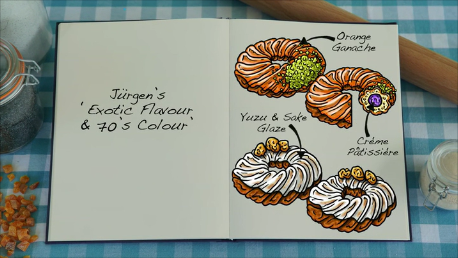 Jürgen's
'Exotic Flavour
& 70's Colour'
Orange
Ganache
Yuzu & Sake
Glaze
Crème
Pâtissière